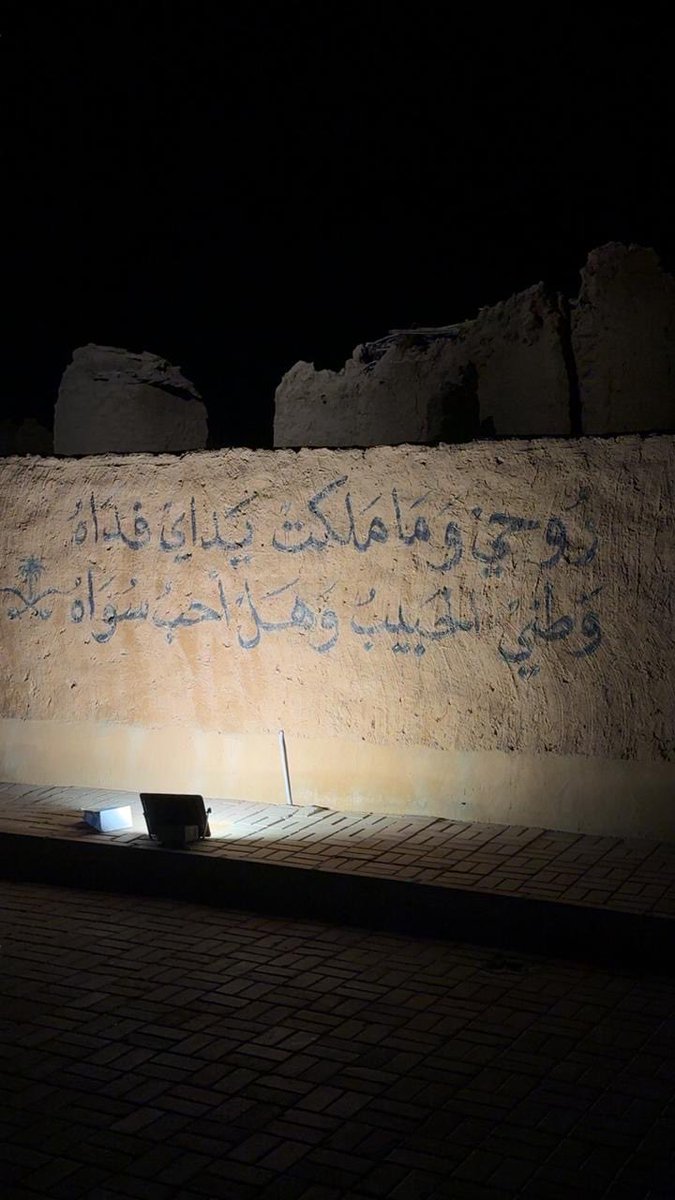 رُوحِيْ وَمَا مَلَكتْ يَدَايْ فدَاهُ
وَطنِيْ الحَبيبُ وَهَلْ أحبُ سُوَاهُ